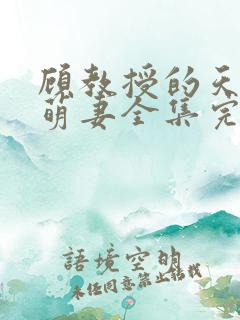 顾教授的天
萌妻全集完
語境空明
未经同意禁止转载